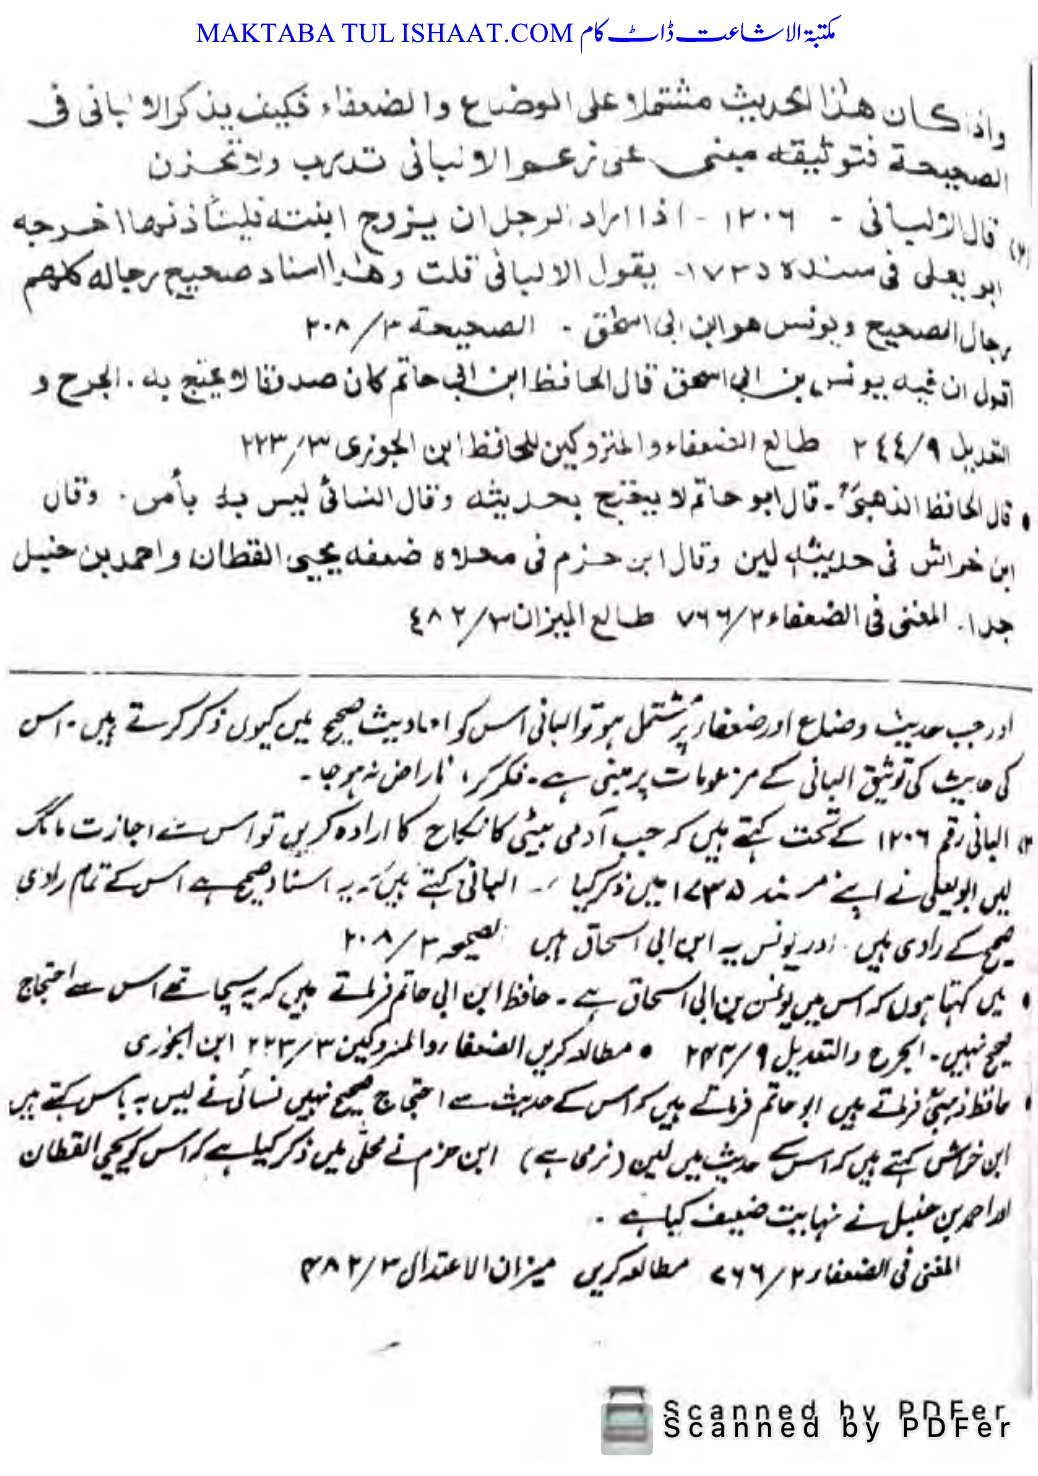 MAKTABA TUL ISHAAT.COM مکتبۃ الاشاعت ڈاٹ کام
واذا كان هذا الحديث مشتملا على الوضاع والضعفاء فكيف يذكر الالبانى فى
الصحيحة فتوثيقه مبنى على زعم الالبانى تدبر ولا تحزن
(٢) قال الالبانى - ١٢٠٦ - اذا اراد الرجل ان يزوج ابنته فليستأذنها اخرجه
ابو يعلى فى مسنده ١٧٣٥- يقول الالبانى قلت وهذا اسناد صحيح رجاله كلهم
رجال الصحيح ويونس هو ابن ابى اسحق - الصحيحة ٣/٢٠٨
اقول ان فيه يونس بن ابى اسحق قال الحافظ ابن ابى حاتم كان صدوقا لا يحتج به . الجرح و
التعديل ٩/٢٤٤ طالع الضعفاء والمتروكين للحافظ ابن الجوزى ٣/٢٢٣
• قال الحافظ الذهبىؒ - قال ابو حاتم لا يحتج بحديثه وقال النسائى ليس به بأس . وقال
ابن خراش فى حديثه لين وقال ابن حزم فى محلاه ضعفه يحيى القطان واحمد بن حنبل
جدا . المغنى فى الضعفاء ٢/٧٦٦ طالع الميزان ٣/٤٨٢
اور جب حدیث وضاع اور ضعفاء پر مشتمل ہو تو البانی اس کو احادیث صحیح میں کیوں ذکر کرتے ہیں - اس
کی حدیث کی توثیق البانی کے مزعومات پر مبنی ہے - فکر کر، ناراض نہ ہو جا -
البانی رقم ۱۲۰۶ کے تحت کہتے ہیں کہ جب آدمی بیٹی کا نکاح کا ارادہ کریں تو اس سے اجازت مانگ
لیں ابو یعلی نے اپنے مسند ۱۷۳۵ میں ذکر کیا - البانی کہتے ہیں کہ یہ اسناد صحیح ہے اس کے تمام راوی
صحیح کے راوی ہیں اور یونس یہ ابن ابی اسحاق ہیں الصحیحہ ۳/۲۰۸
• میں کہتا ہوں کہ اس میں یونس بن ابی اسحاق ہے - حافظ ابن ابی حاتم فرماتے ہیں کہ یہ سچا تھے اس سے احتجاج
صحیح نہیں - الجرح والتعدیل ۹/۲۴۴ • مطالعہ کریں الضعفاء والمتروکین ۳/۲۲۳ ابن الجوزی
• حافظ ذہبیؒ فرماتے ہیں ابو حاتم فرماتے ہیں کہ اس کے حدیث سے احتجاج صحیح نہیں نسائی نے لیس بہ باس کہتے ہیں
ابن خراش کہتے ہیں کہ اس کے حدیث میں لین (نرمی ہے) ابن حزم نے محلّی میں ذکر کیا ہے کہ اس کو یحیی القطان
اور احمد بن حنبل نے نہایت ضعیف کہا ہے -
المغنی فی الضعفاء ۲/۷۶۶ مطالعہ کریں میزان الاعتدال ۳/۴۸۲
Scanned by PDFer
Scanned by PDFer